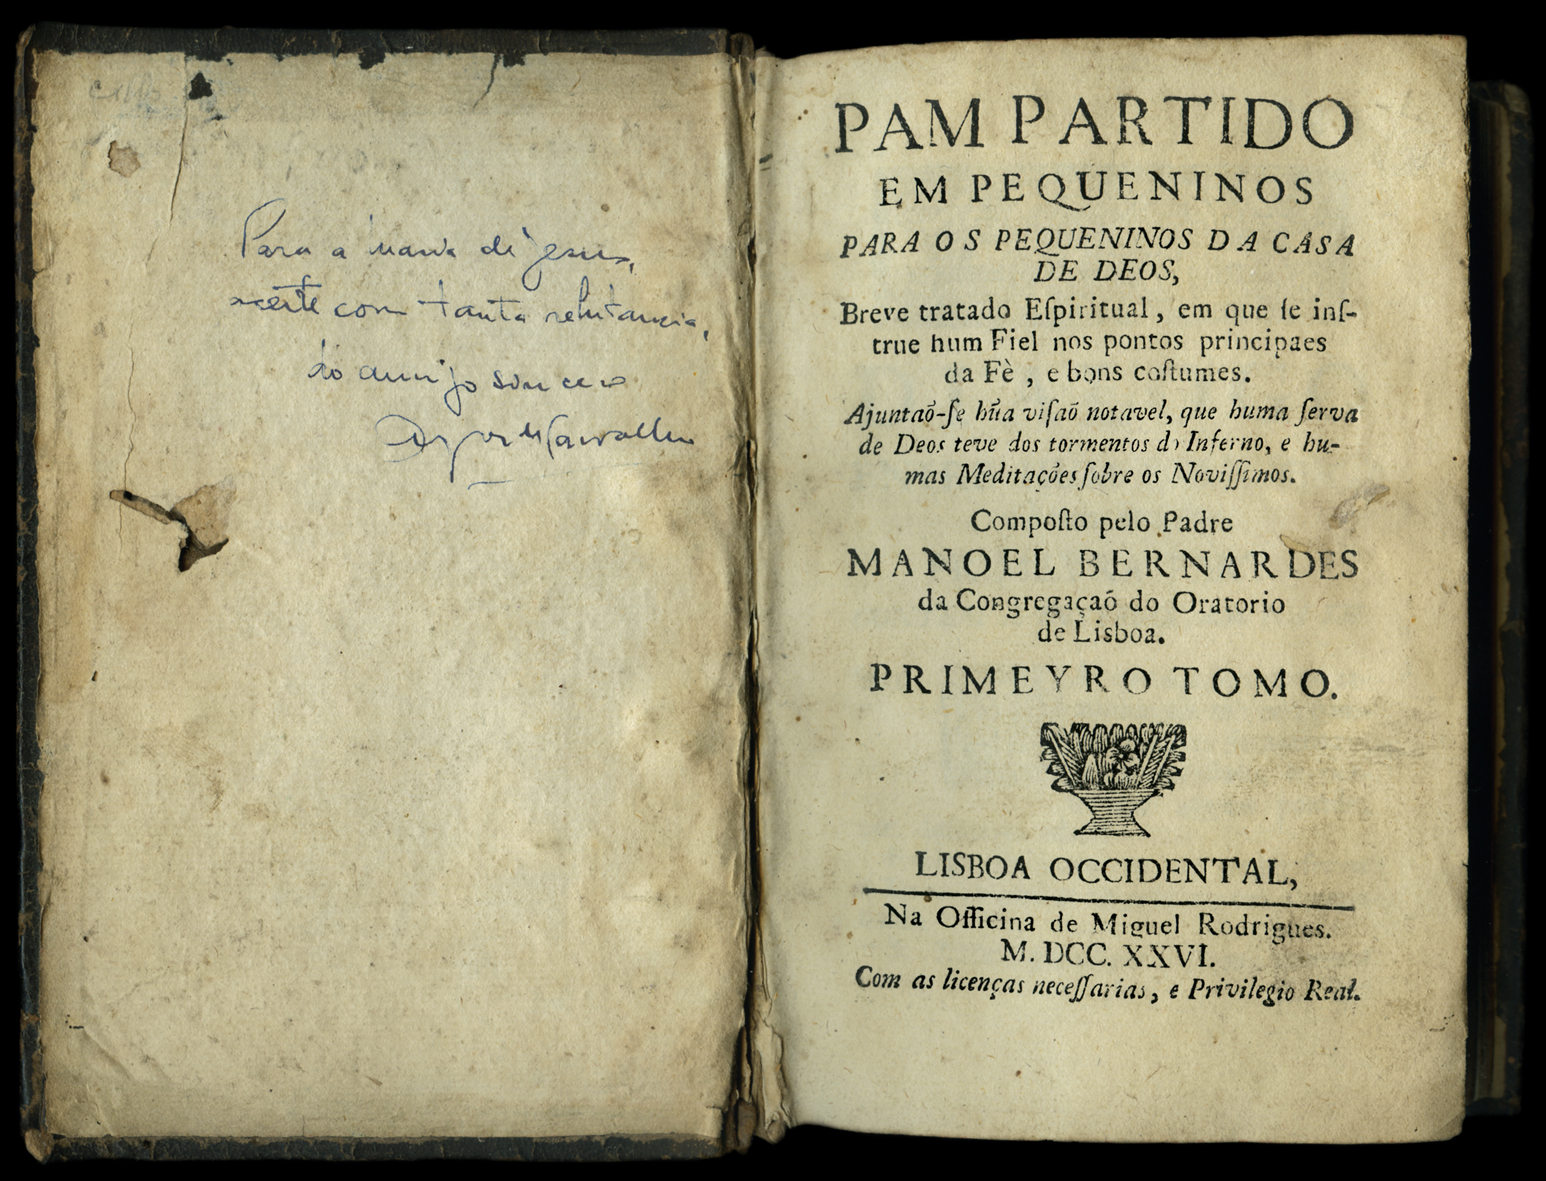 Para a Maria de Jesus,
aceite com tanta relutancia,
do amigo sincero
Carvalho
PAM PARTIDO
EM PEQUENINOS
PARA OS PEQUENINOS DA CASA
DE DEOS,
Breve tratado Eſpiritual, em que ſe inſ-
true hum Fiel nos pontos principaes
da Fè, e bons coſtumes.
Ajuntaõ-ſe hũa viſaõ notavel, que huma ſerva
de Deos teve dos tormentos do Inferno, e hu-
mas Meditações ſobre os Noviſſimos.
Compoſto pelo Padre
MANOEL BERNARDES
da Congregaçaõ do Oratorio
de Lisboa.
PRIMEYRO TOMO.
LISBOA OCCIDENTAL,
Na Officina de Miguel Rodrigues.
M. DCC. XXVI.
Com as licenças neceſſarias, e Privilegio Real.